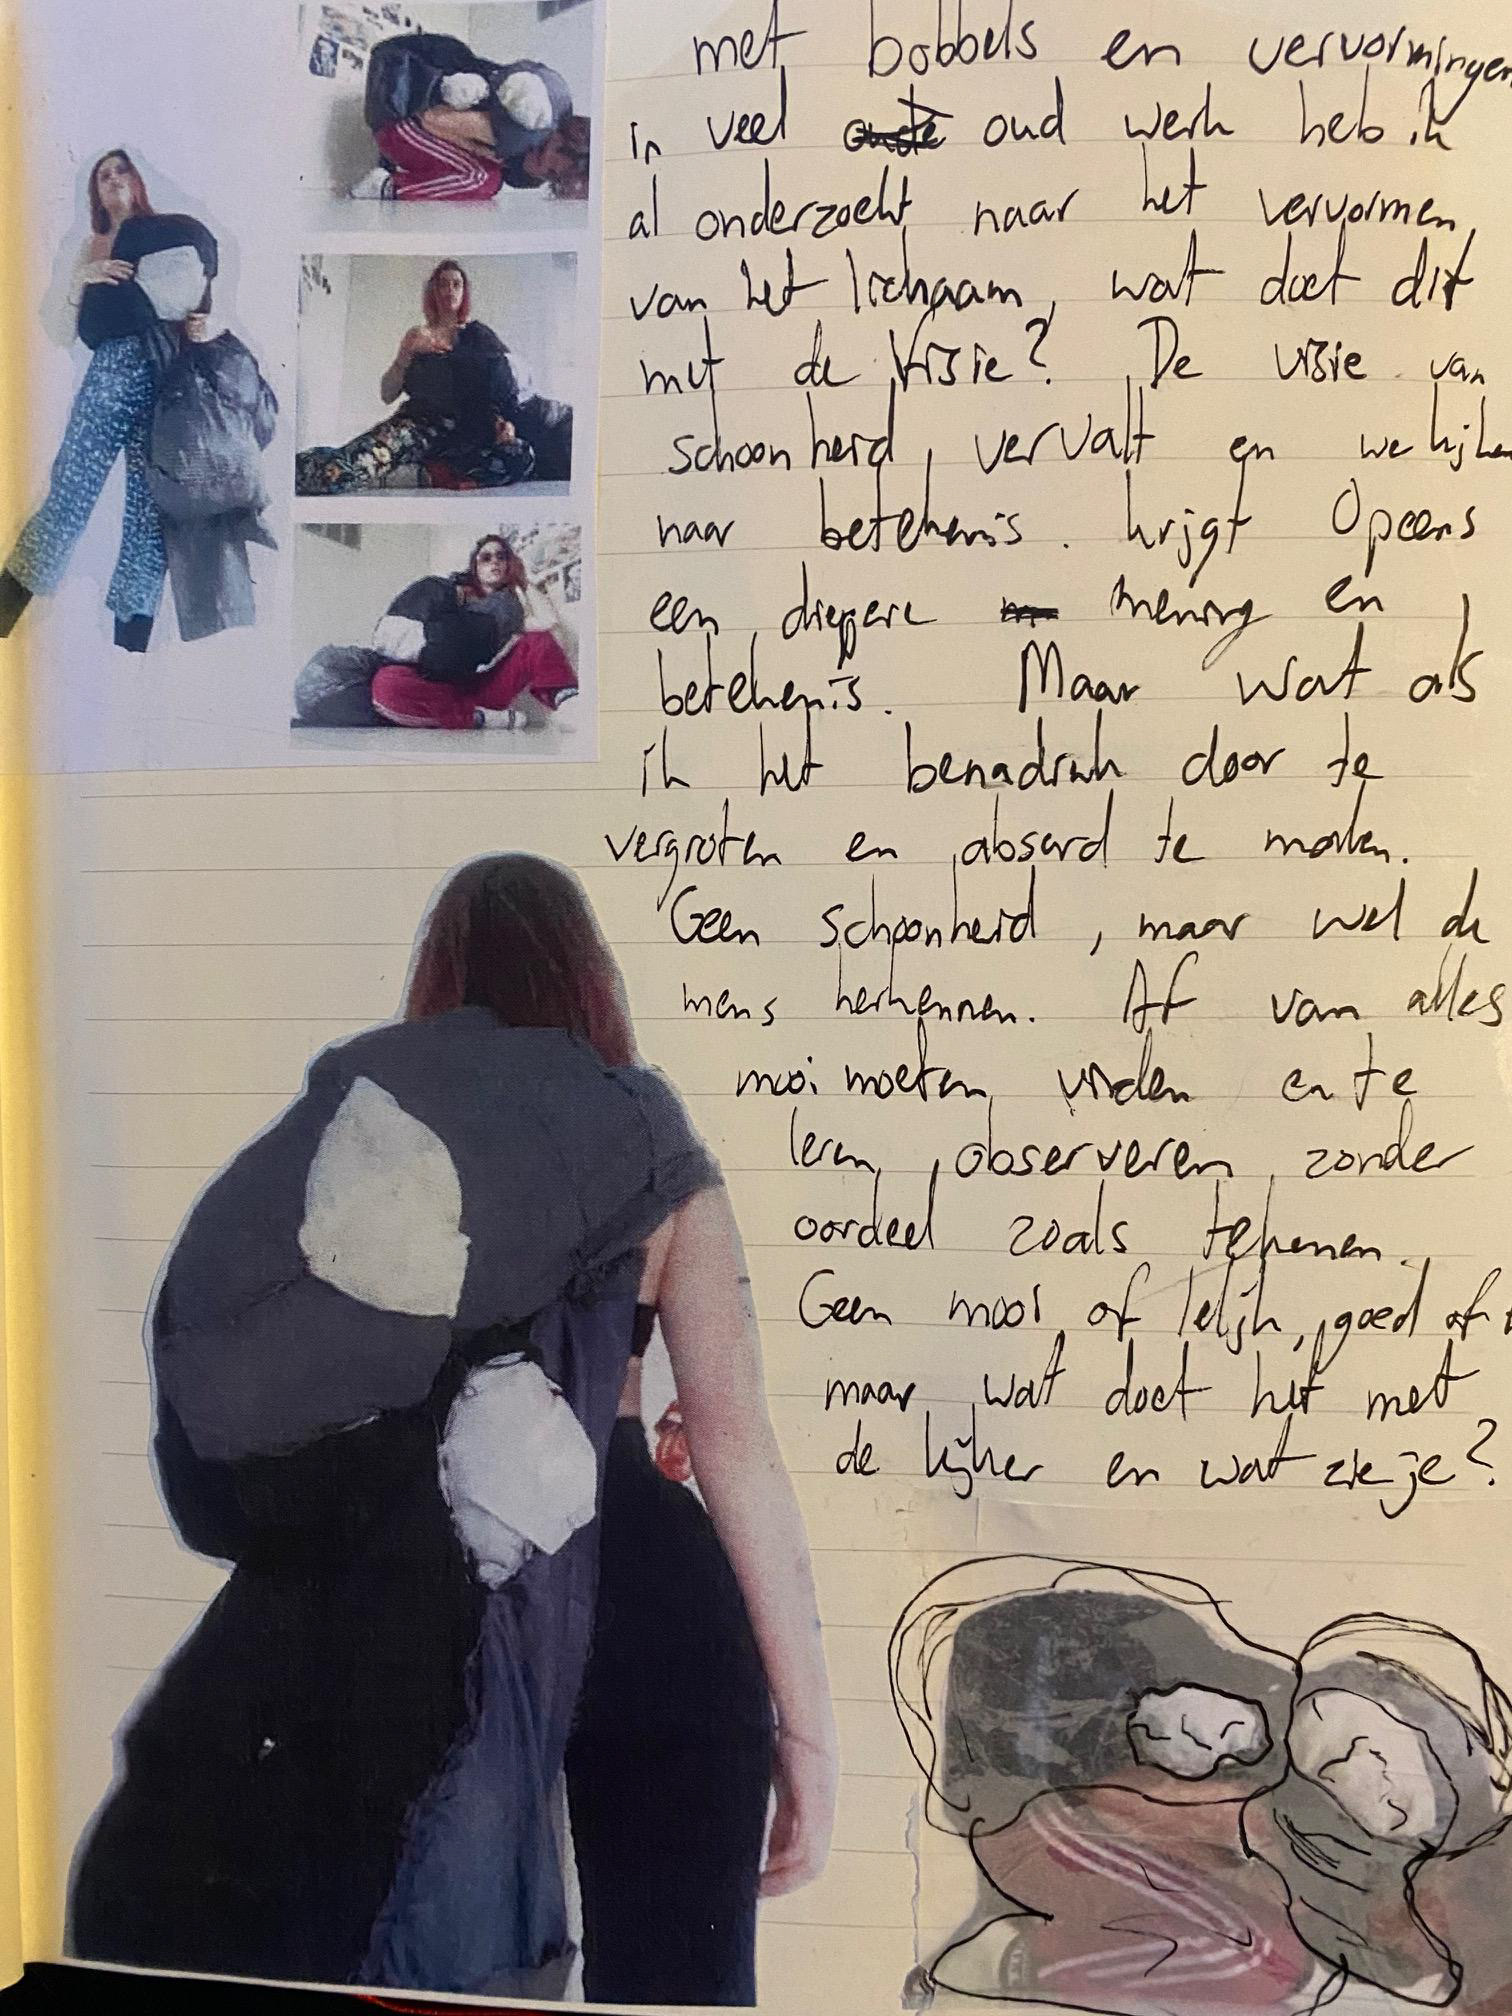 met bobbels en vervormingen
in veel oud werk heb ik
al onderzocht naar het vervormen
van het lichaam, wat doet dit
met de visie? De visie van
schoonheid, vervalt en we kijken
naar betekenis. krijgt Opeens
een diepere mening en
betekenis. Maar wat als
ik het benadruk door te
vergroten en absurd te maken.
Geen schoonheid, maar wel de
mens herkennen. Af van alles
mooi moeten vinden en te
leren observeren zonder
oordeel zoals tekenen.
Geen mooi of lelijk, goed of
maar wat doet het met
de kijker en wat zie je?